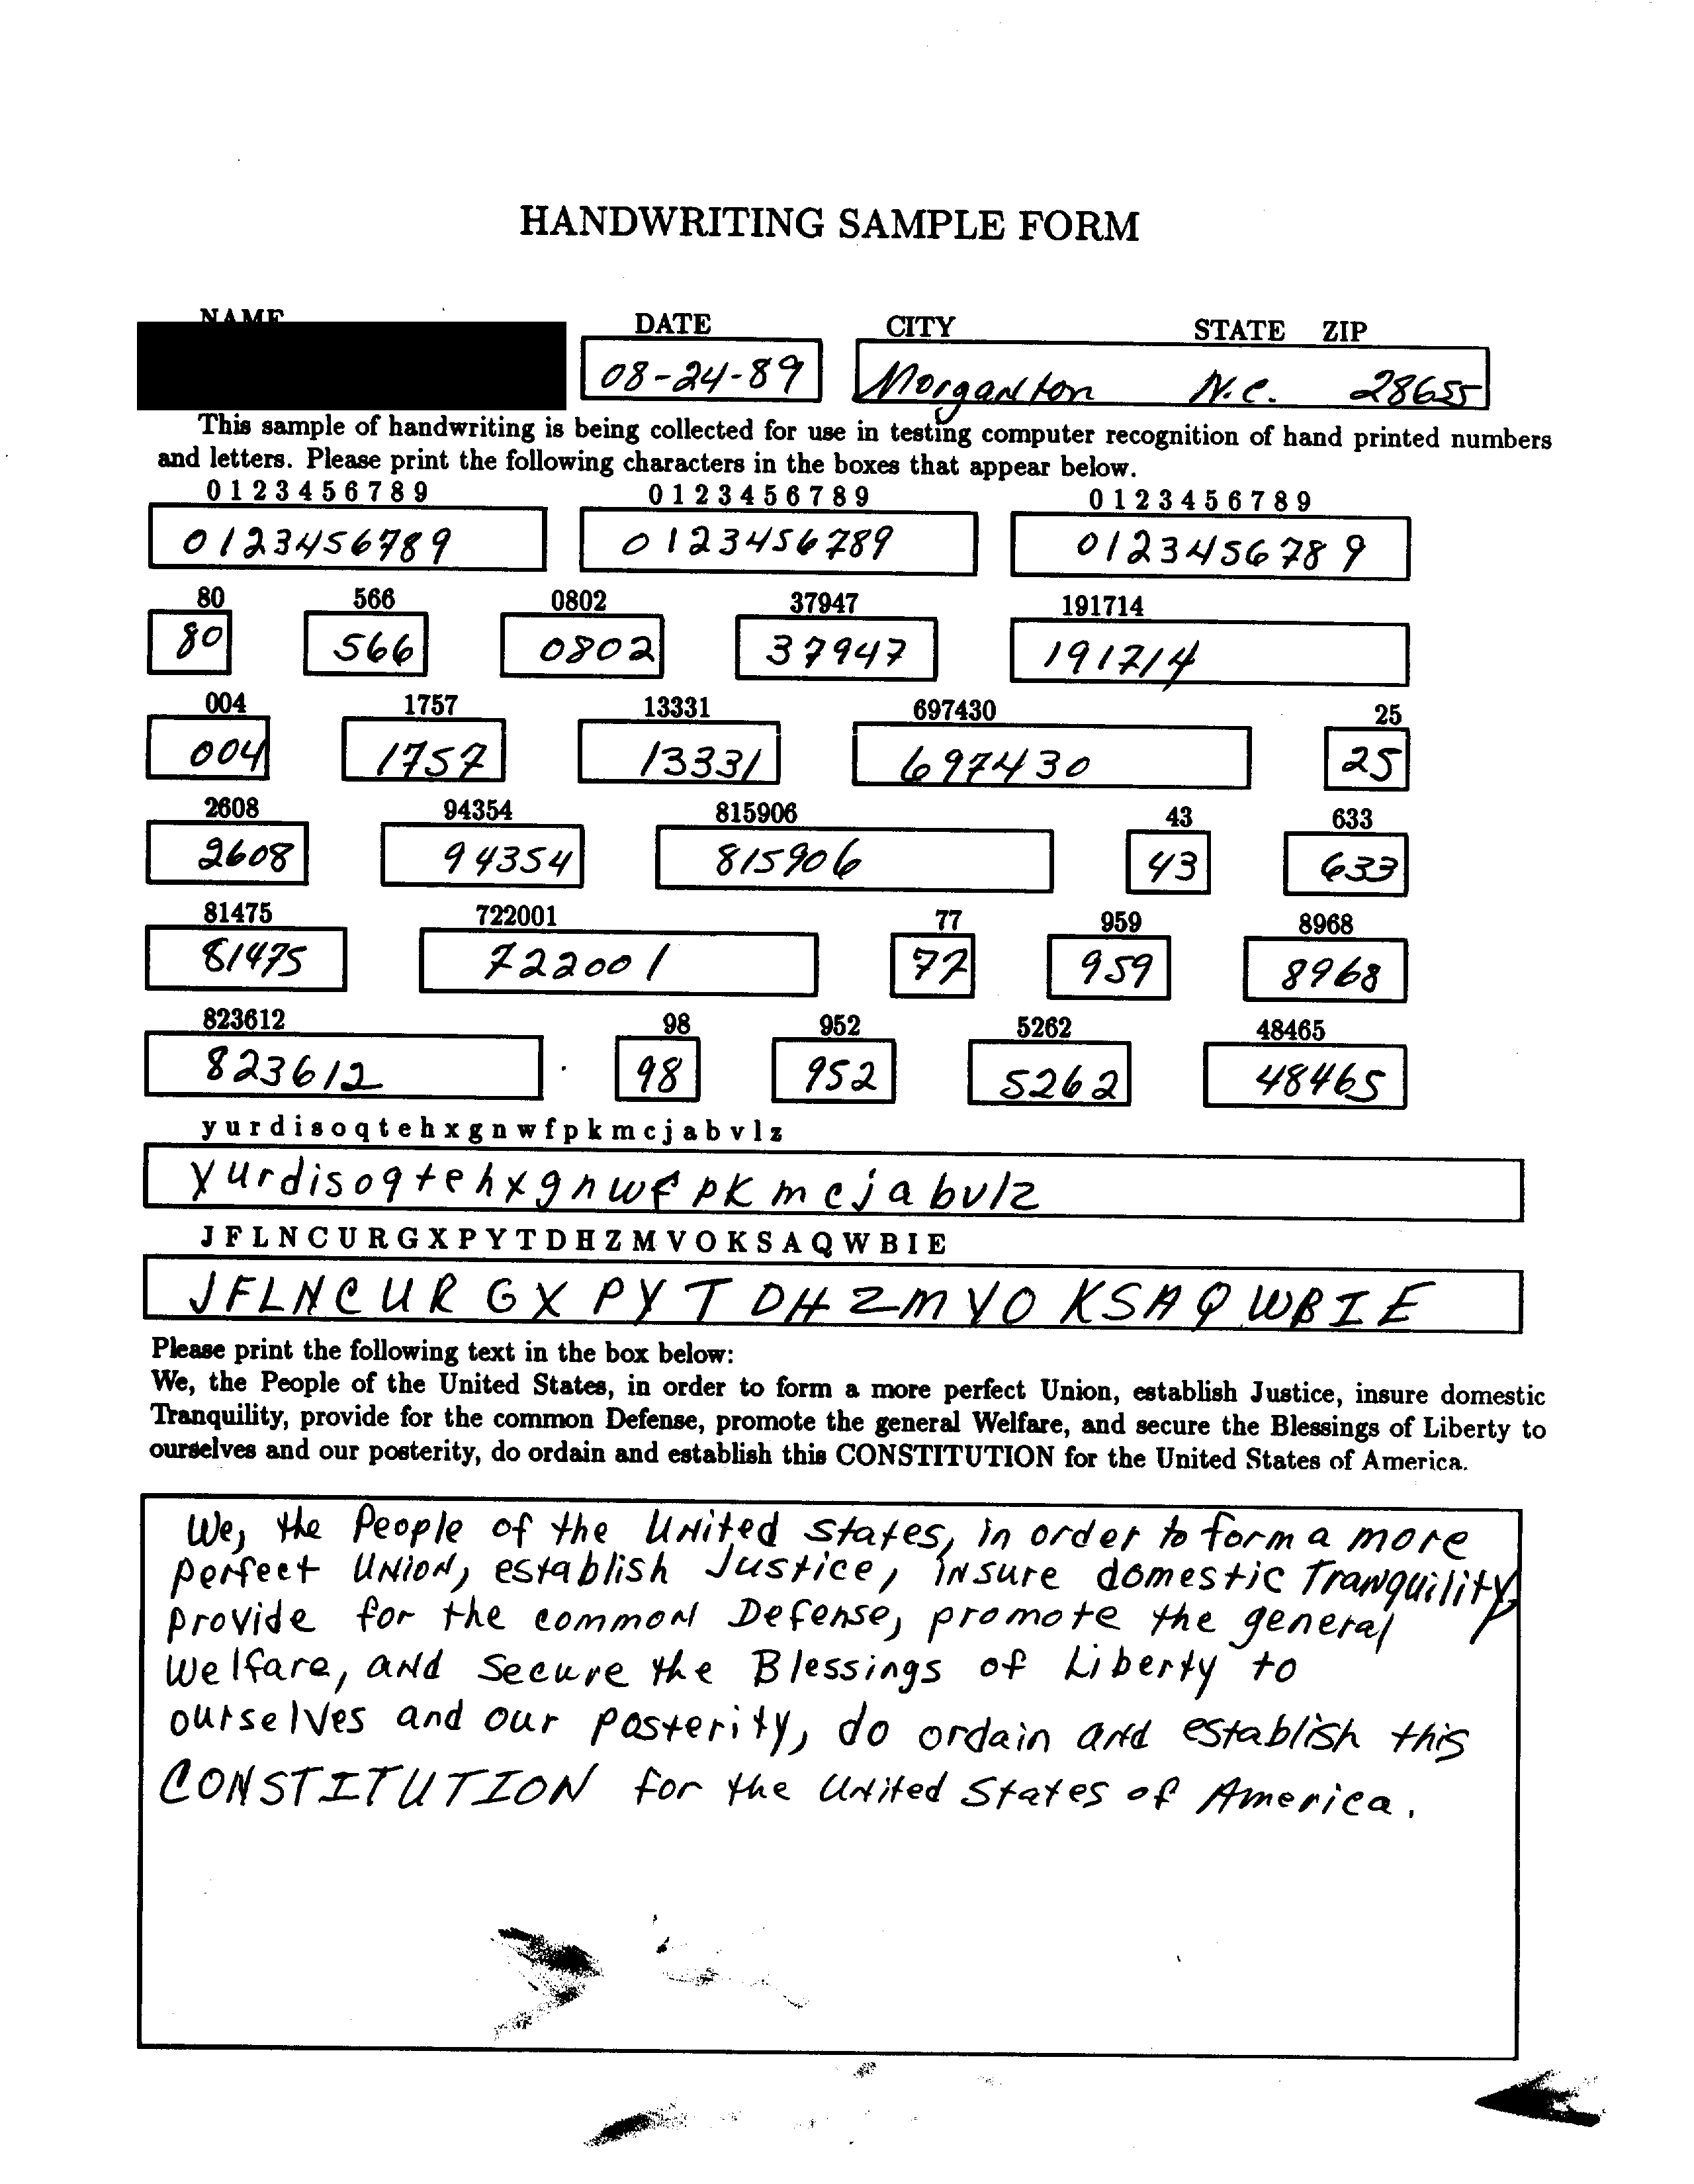 HANDWRITING SAMPLE FORM
NAME DATE CITY STATE ZIP
08-24-89 Morganton N.C. 28655
This sample of handwriting is being collected for use in testing computer recognition of hand printed numbers
and letters. Please print the following characters in the boxes that appear below.
0 1 2 3 4 5 6 7 8 9 0 1 2 3 4 5 6 7 8 9 0 1 2 3 4 5 6 7 8 9
0123456789 0123456789 0123456789
80 566 0802 37947 191714
80 566 0802 37947 191714
004 1757 13331 697430 25
004 1757 13331 697430 25
2608 94354 815906 43 633
2608 94354 815906 43 633
81475 722001 77 959 8968
81475 722001 77 959 8968
823612 98 952 5262 48465
823612 98 952 5262 48465
y u r d i s o q t e h x g n w f p k m c j a b v l z
yurdisoqtehxgnwfpkmcjabvlz
J F L N C U R G X P Y T D H Z M V O K S A Q W B I E
JFLNCURGXPYTDHZMVOKSAQWBIE
Please print the following text in the box below:
We, the People of the United States, in order to form a more perfect Union, establish Justice, insure domestic
Tranquility, provide for the common Defense, promote the general Welfare, and secure the Blessings of Liberty to
ourselves and our posterity, do ordain and establish this CONSTITUTION for the United States of America.
We, the People of the UNited states, in order to form a more
perfect UNIoN, establish Justice, iNsure domestic TraNquility,
provide for the commoN Defense, promote the general
Welfare, aNd secure the Blessings of Liberty to
ourselves and our posterity, do ordain aNd establish this
CONSTITUTION for the UNited States of America.